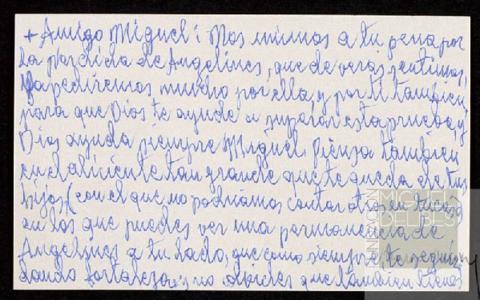 + Amigo Miguel: Nos unimos a tu pena por
la pérdida de Angelines, que de veras sentimos,
pediremos mucho por ella, y por ti también,
para que Dios te ayude a superar esta prueba, y
Dios ayuda siempre Miguel. Piensa también
en el aliciente tan grande que te queda de tus
hijos, (con el que no podríamos contar otros en tu caso)
en los que puedes ver una permanencia de
Angelines a tu lado, que como siempre, te seguirá
dando fortaleza; no olvides que también tienes
FUNDACIÓN
MIGUEL
DELIBES